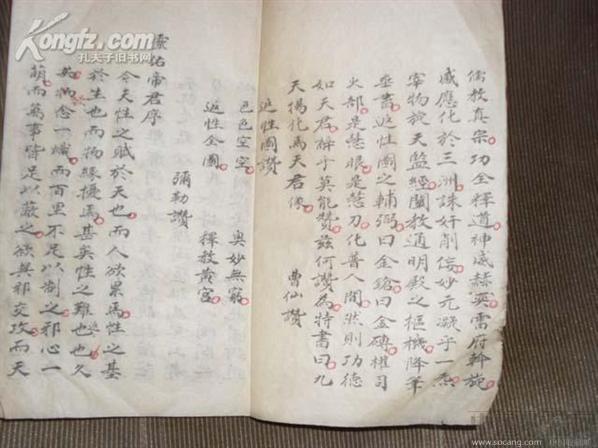 儒教真宗功全釋道神威赫奕雷府幹旋
感應化於三洲誅奸削佞妙元凝乎一炁
宰物旋天監經闡教通明殿之樞機降筆
垂書返性圖之輔弼曰金鎗曰金磚權司
火部是慧眼是慧刀化普人間然則功德
如天君辭乎莫能贊茲何讚為特書曰九
天揚化馬天君像
曹仙讚
返性圖讚
色色空空 奧妙無窮
返性全圖 釋教黃宮
彌勒讚
靈佑帝君序
今夫性之賦於天也而人欲累焉性之基
於生也而物緣擾焉甚矣性之難也也久
矣一念一熾而百里不足以制之邪心一
萌而萬事皆足以蔽之欲與邪交攻而天
Kongfz.com
孔夫子旧书网
www.socang.com